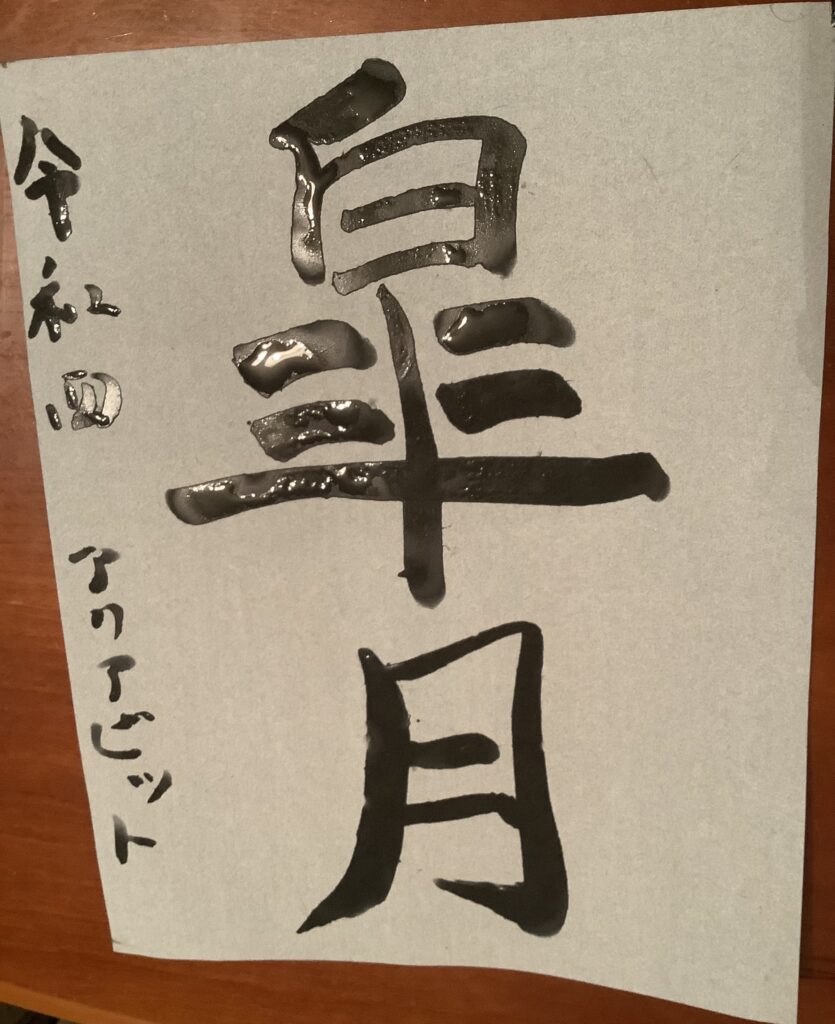 皐月
令和四 アクアビット